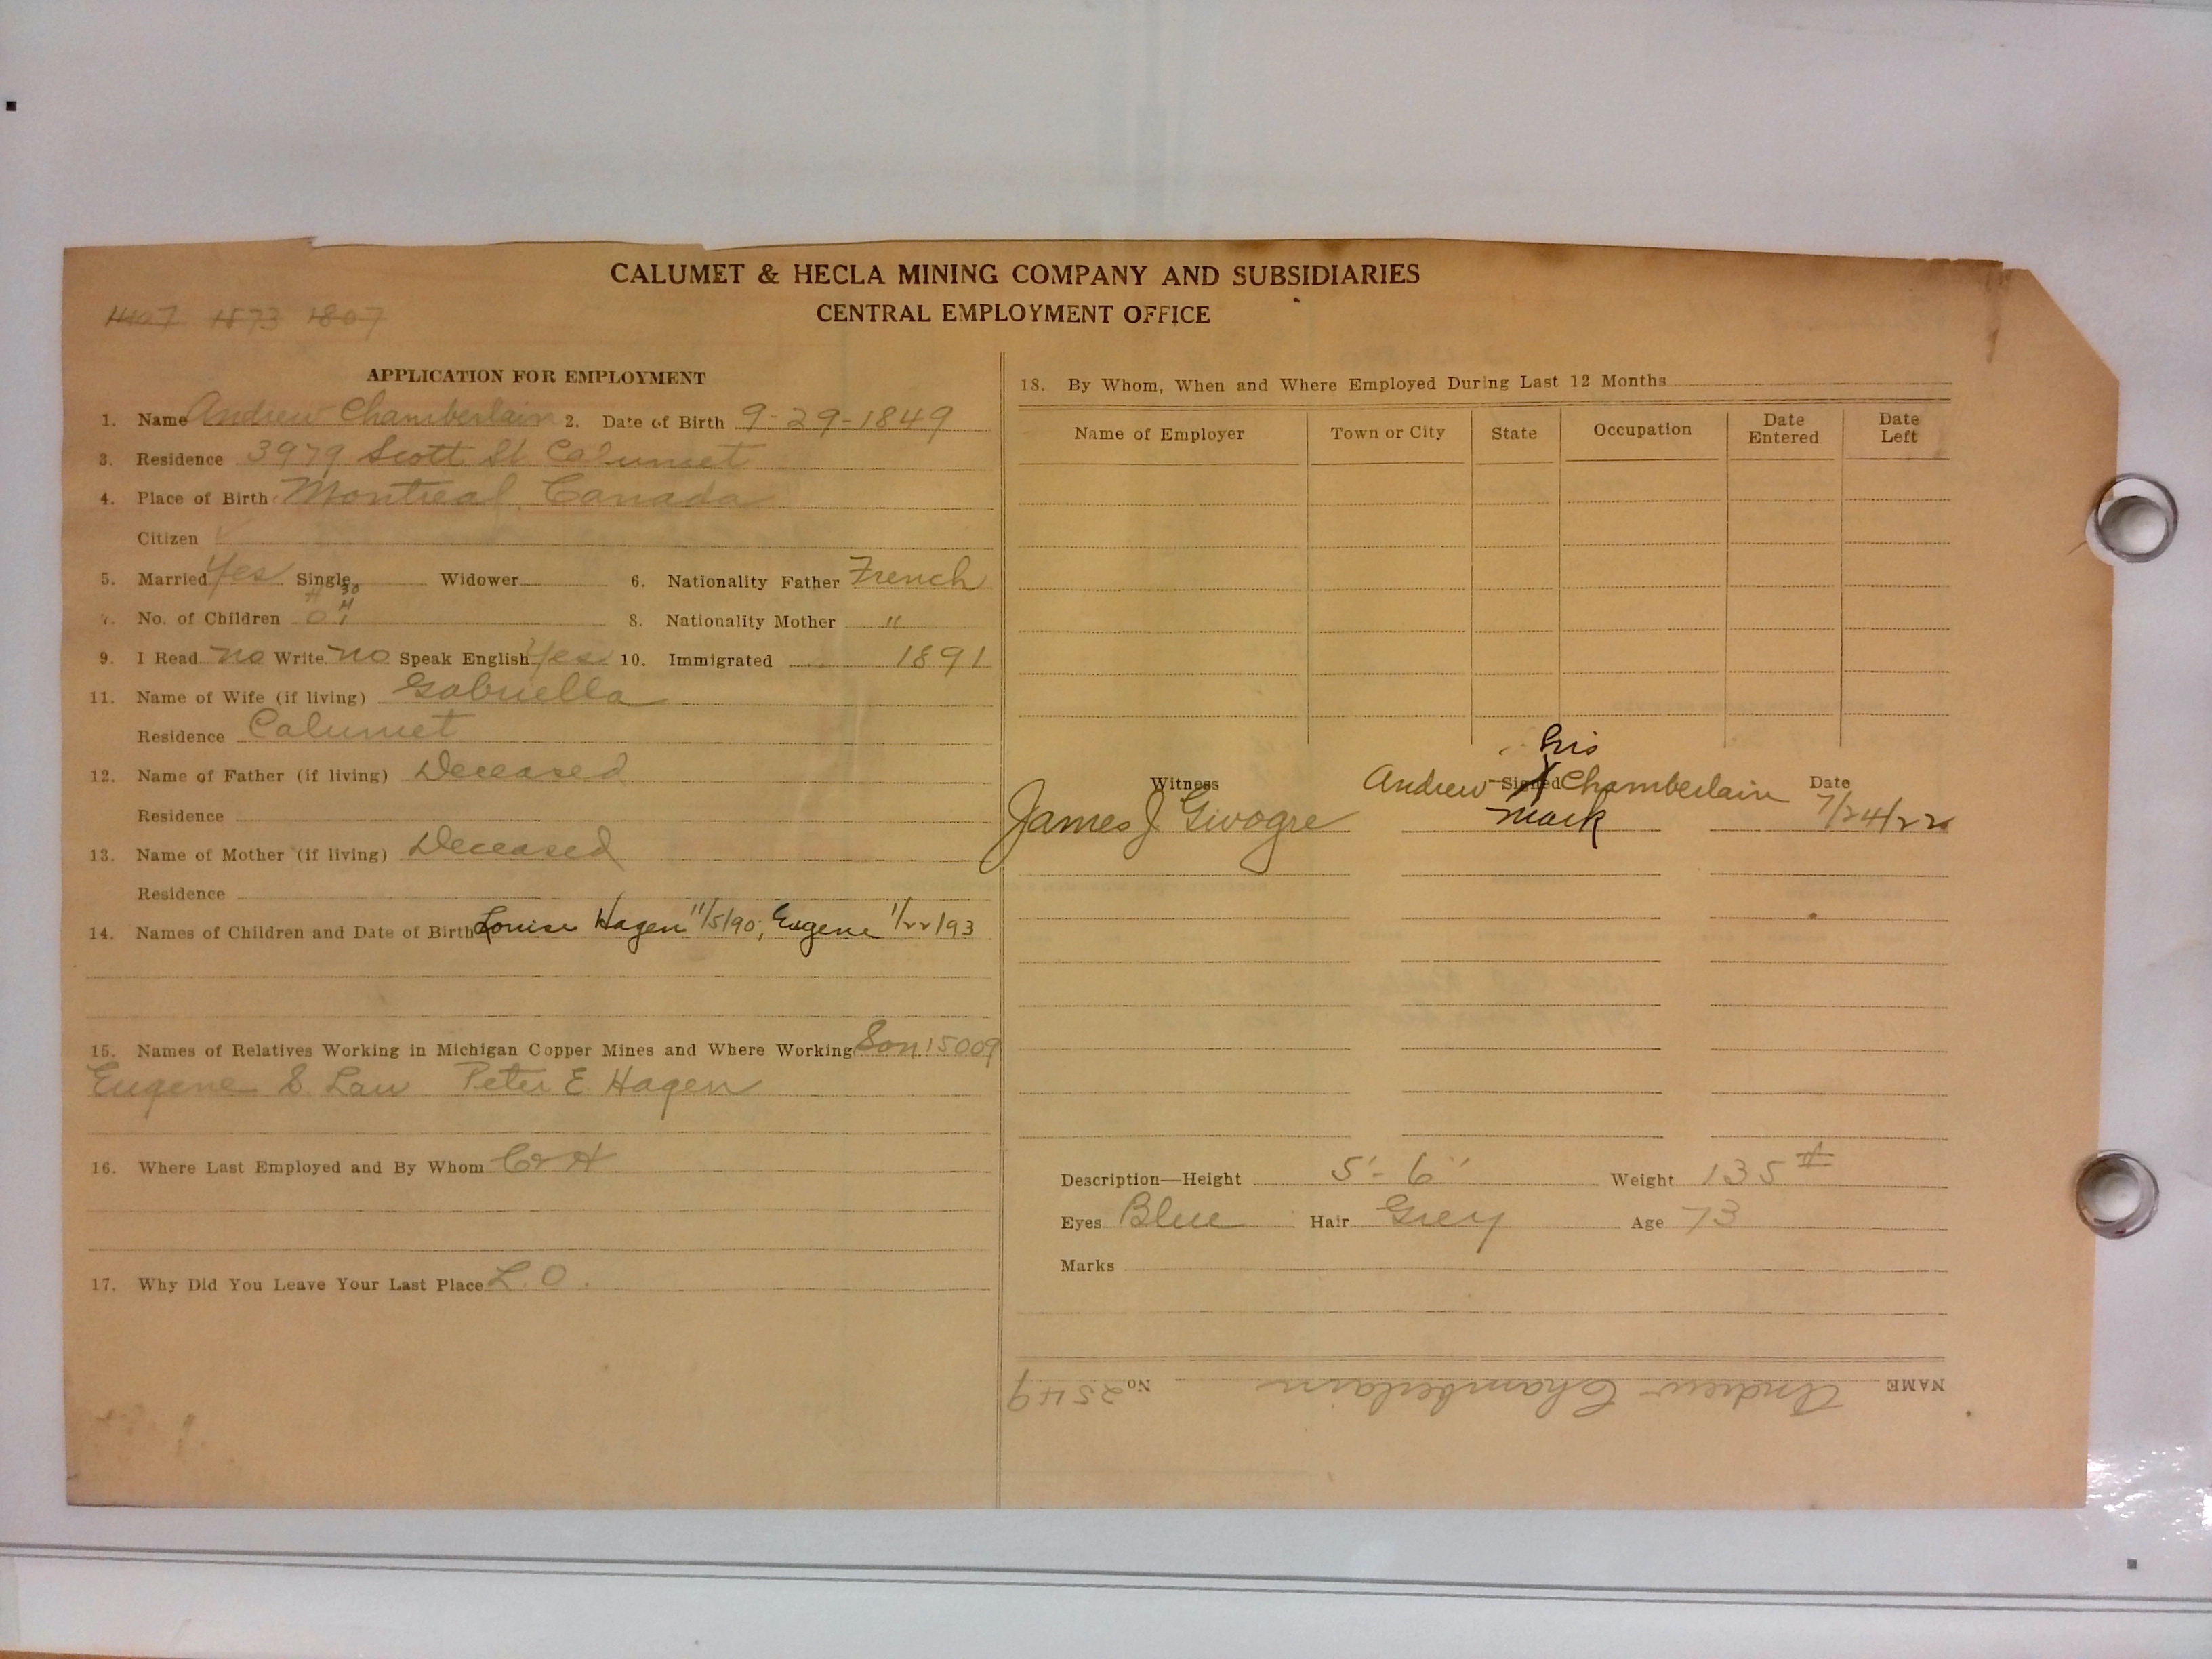 CALUMET & HECLA MINING COMPANY AND SUBSIDIARIES
CENTRAL EMPLOYMENT OFFICE
1573 1807
APPLICATION FOR EMPLOYMENT
1. Name Andrew Chamberlain 2. Date of Birth 9-29-1849
3. Residence 3979 Scott St Calumet
4. Place of Birth Montreal, Canada
Citizen ✓
5. Married Yes Single Widower 6. Nationality Father French
7. No. of Children 8. Nationality Mother "
9. I Read no Write no Speak English Yes 10. Immigrated 1891
11. Name of Wife (if living) Gabriella
Residence Calumet
12. Name of Father (if living) Deceased
Residence
13. Name of Mother (if living) Deceased
Residence
14. Names of Children and Date of Birth Louise Hagen 11/5/90; Eugene 1/22/93
15. Names of Relatives Working in Michigan Copper Mines and Where Working Son 15009
Eugene S. Law Peter E. Hagen
16. Where Last Employed and By Whom C & H
17. Why Did You Leave Your Last Place L.O.
18. By Whom, When and Where Employed During Last 12 Months
Name of Employer Town or City State Occupation Date Entered Date Left
his
Witness Andrew Signed X Chamberlain Date
James J Givogre mark 7/24/22
Description—Height 5'-6" Weight 135#
Eyes Blue Hair Grey Age 73
Marks
NAME Andrew Chamberlain No. 2549